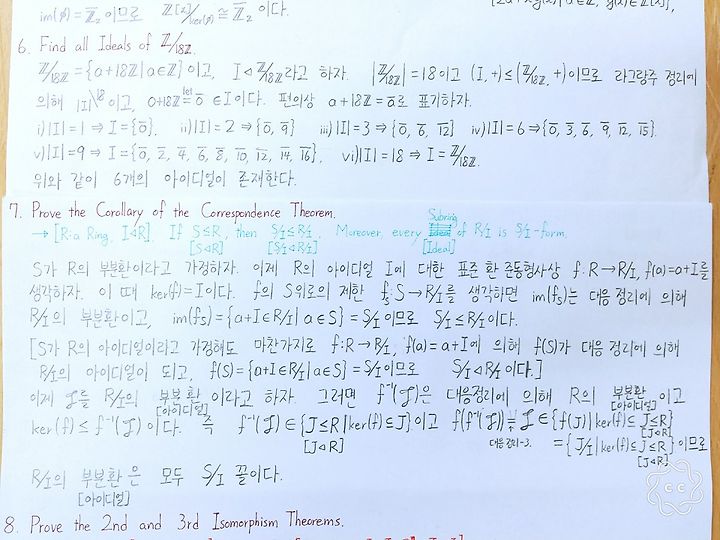 im(φ)=Z̄₂ 이므로 Z[x]/ker(φ) ≅ Z̄₂ 이다.
6. Find all Ideals of Z/18Z.
Z/18Z = {a+18Z | a∈Z} 이고, I◁Z/18Z라고 하자. |Z/18Z| = 18이고 (I,+)≤(Z/18Z,+)이므로 라그랑주 정리에
의해 |I| | 18 이고, 0+18Z ≝(let) 0̄ ∈ I이다. 편의상 a+18Z = ā로 표기하자.
i) |I|=1 ⇒ I={0̄}. ii) |I|=2 ⇒ {0̄, 9̄} iii) |I|=3 ⇒ {0̄, 6̄, 12̄} iv) |I|=6 ⇒ {0̄, 3̄, 6̄, 9̄, 12̄, 15̄}.
v) |I|=9 ⇒ I={0̄, 2̄, 4̄, 6̄, 8̄, 10̄, 12̄, 14̄, 16̄}, vi) |I|=18 ⇒ I=Z/18Z.
위와 같이 6개의 아이디얼이 존재한다.
7. Prove the Corollary of the Correspondence Theorem.
→ [R: a Ring, I◁R]. If S≤R, then S/I≤R/I. Moreover, every Subring of R/I is S/I-form.
[S◁R] [S/I◁R/I] [Ideal]
S가 R의 부분환이라고 가정하자. 이제 R의 아이디얼 I에 대한 표준 환 준동형사상 f:R→R/I, f(a)=a+I를
생각하자. 이 때 ker(f)=I이다. f의 S위로의 제한 f_S:S→R/I를 생각하면 im(f_S)는 대응 정리에 의해
R/I의 부분환이고, im(f_S)={a+I∈R/I | a∈S}=S/I이므로 S/I≤R/I이다.
[S가 R의 아이디얼이라고 가정해도 마찬가지로 f:R→R/I, f(a)=a+I에 의해 f(S)가 대응 정리에 의해
R/I의 아이디얼이 되고, f(S)={a+I∈R/I | a∈S}=S/I이므로 S/I◁R/I이다.]
이제 𝒥를 R/I의 부분환이라고 하자. 그러면 f⁻¹(𝒥)은 대응정리에 의해 R의 부분환 이고
[아이디얼] [아이디얼]
ker(f)≤f⁻¹(𝒥)이다. 즉 f⁻¹(𝒥)∈{J≤R | ker(f)⊆J}이고 f(f⁻¹(𝒥))=𝒥∈{f(J) | ker(f)⊆J≤R}
[J◁R] 대응정리-3. [J◁R]
={J/I | ker(f)⊆J≤R}이므로
[J◁R]
R/I의 부분환은 모두 S/I 꼴이다.
[아이디얼]
CC
8. Prove the 2nd and 3rd Isomorphism Theorems.